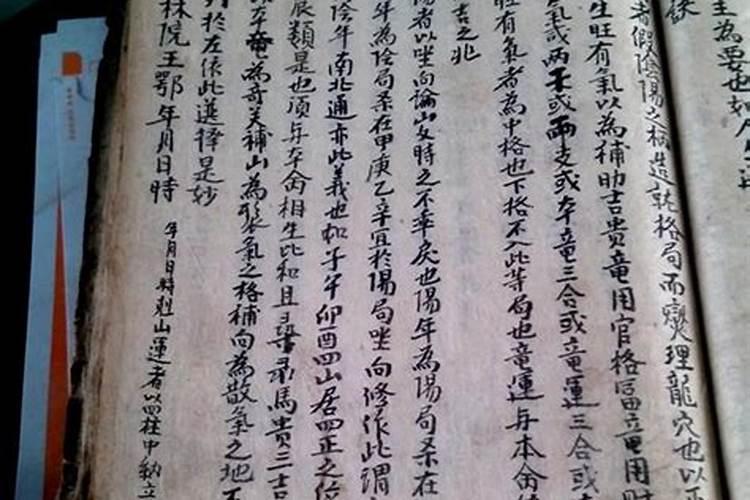 主為要也
訣
者假陰陽之柄造乾格局而燮理龍穴也以
生旺有氣以為補助吉貴竜用官格
氣或兩干或兩支或本竜三合或竜運三合或
旺有氣者為中格也下格不入此等局也竜運与本龠
吉之兆
陽者以坐向論山女時之不乖戾也陽年為陽局系在
年為陰局系在甲庚乙辛宜於陽局坐向修作此謂
陰年南北通亦此義也如子午卯酉四山居四正之位
辰類是也須与本龠相生比和且尋彔馬貴三吉
本竜為奇关補山為聚氣之格補向為散氣之地
於左依此選擇是妙
林院王鄂年月日時
年月日時剋山運者以四柱中納